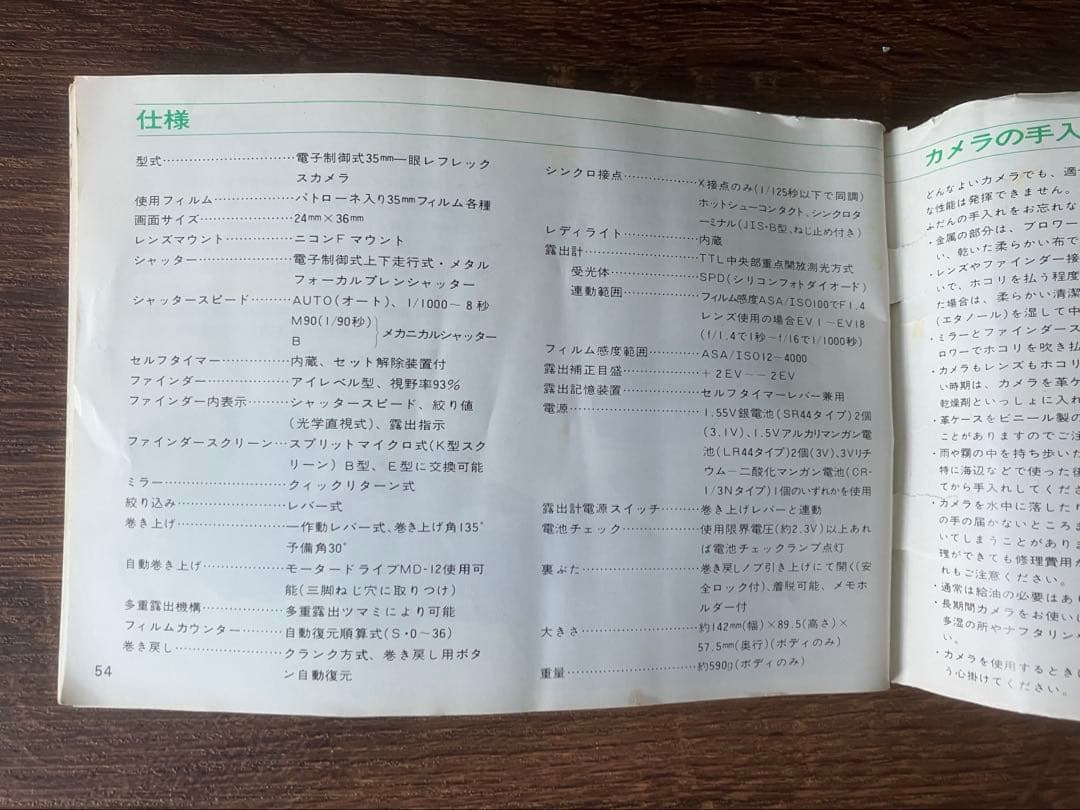 仕様
型式……………………電子制御式35mm一眼レフレック
スカメラ
使用フィルム……………パトローネ入り35mmフィルム各種
画面サイズ………………24mm×36mm
レンズマウント…………ニコンFマウント
シャッター………………電子制御式上下走行式・メタル
フォーカルプレンシャッター
シャッタースピード……AUTO(オート)、1/1000〜8秒
M90(1/90秒)
B
メカニカルシャッター
セルフタイマー…………内蔵、セット解除装置付
ファインダー……………アイレベル型、視野率93%
ファインダー内表示……シャッタースピード、絞り値
(光学直視式)、露出指示
ファインダースクリーン…スプリットマイクロ式(K型スク
リーン)B型、E型に交換可能
ミラー……………………クィックリターン式
絞り込み…………………レバー式
巻き上げ…………………一作動レバー式、巻き上げ角135°
予備角30°
自動巻き上げ……………モータードライブMD-12使用可
能(三脚ねじ穴に取りつけ)
多重露出機構……………多重露出ツマミにより可能
フィルムカウンター……自動復元順算式(S・0〜36)
巻き戻し…………………クランク方式、巻き戻し用ボタ
ン自動復元
54
シンクロ接点……………X接点のみ(1/125秒以下で同調)
ホットシューコンタクト、シンクロタ
ーミナル(JIS・B型、ねじ止め付き)
レディライト……………内蔵
露出計……………………TTL中央部重点開放測光方式
受光体……………………SPD(シリコンフォトダイオード)
連動範囲…………………フィルム感度ASA/ISO100でF1.4
レンズ使用の場合EV1〜EV18
(f/1.4で1秒〜f/16で1/1000秒)
フィルム感度範囲………ASA/ISO12〜4000
露出補正目盛……………+2EV〜−2EV
露出記憶装置……………セルフタイマーレバー兼用
電源………………………1.55V銀電池(SR44タイプ)2個
(3.1V)、1.5Vアルカリマンガン電
池(LR44タイプ)2個(3V)、3Vリチ
ウム−二酸化マンガン電池(CR-
1/3Nタイプ)1個のいずれかを使用
露出計電源スイッチ……巻き上げレバーと連動
電池チェック……………使用限界電圧(約2.3V)以上あれ
ば電池チェックランプ点灯
裏ぶた……………………巻き戻しノブ引き上げにて開く(安
全ロック付)、着脱可能、メモホ
ルダー付
大きさ……………………約142mm(幅)×89.5(高さ)×
57.5mm(奥行)(ボディのみ)
重量………………………約590g(ボディのみ)
カメラの手入
どんなよいカメラでも、適
な性能は発揮できません。
ふだんの手入れをお忘れな
・金属の部分は、ブロワー
い、乾いた柔らかい布で
・レンズやファインダー接
いで、ホコリを払う程度
た場合は、柔らかい清潔
(エタノール)を湿して中
・ミラーとファインダース
ロワーでホコリを吹き払
・カメラもレンズもホコリ
い時期は、カメラを革ケ
乾燥剤といっしょに入れ
・革ケースをビニール製の
ことがありますのでご注
・雨や霧の中を持ち歩いた
特に海辺などで使った後
てから手入れしてくださ
・カメラを水中に落したり
の手の届かないところま
いてしまうことがありま
理ができても修理費用が
れもご注意ください。
・通常は給油の必要はあり
・長期間カメラをお使いに
多湿の所やナフタリン
い。
・カメラを使用するときの
う心掛けてください。